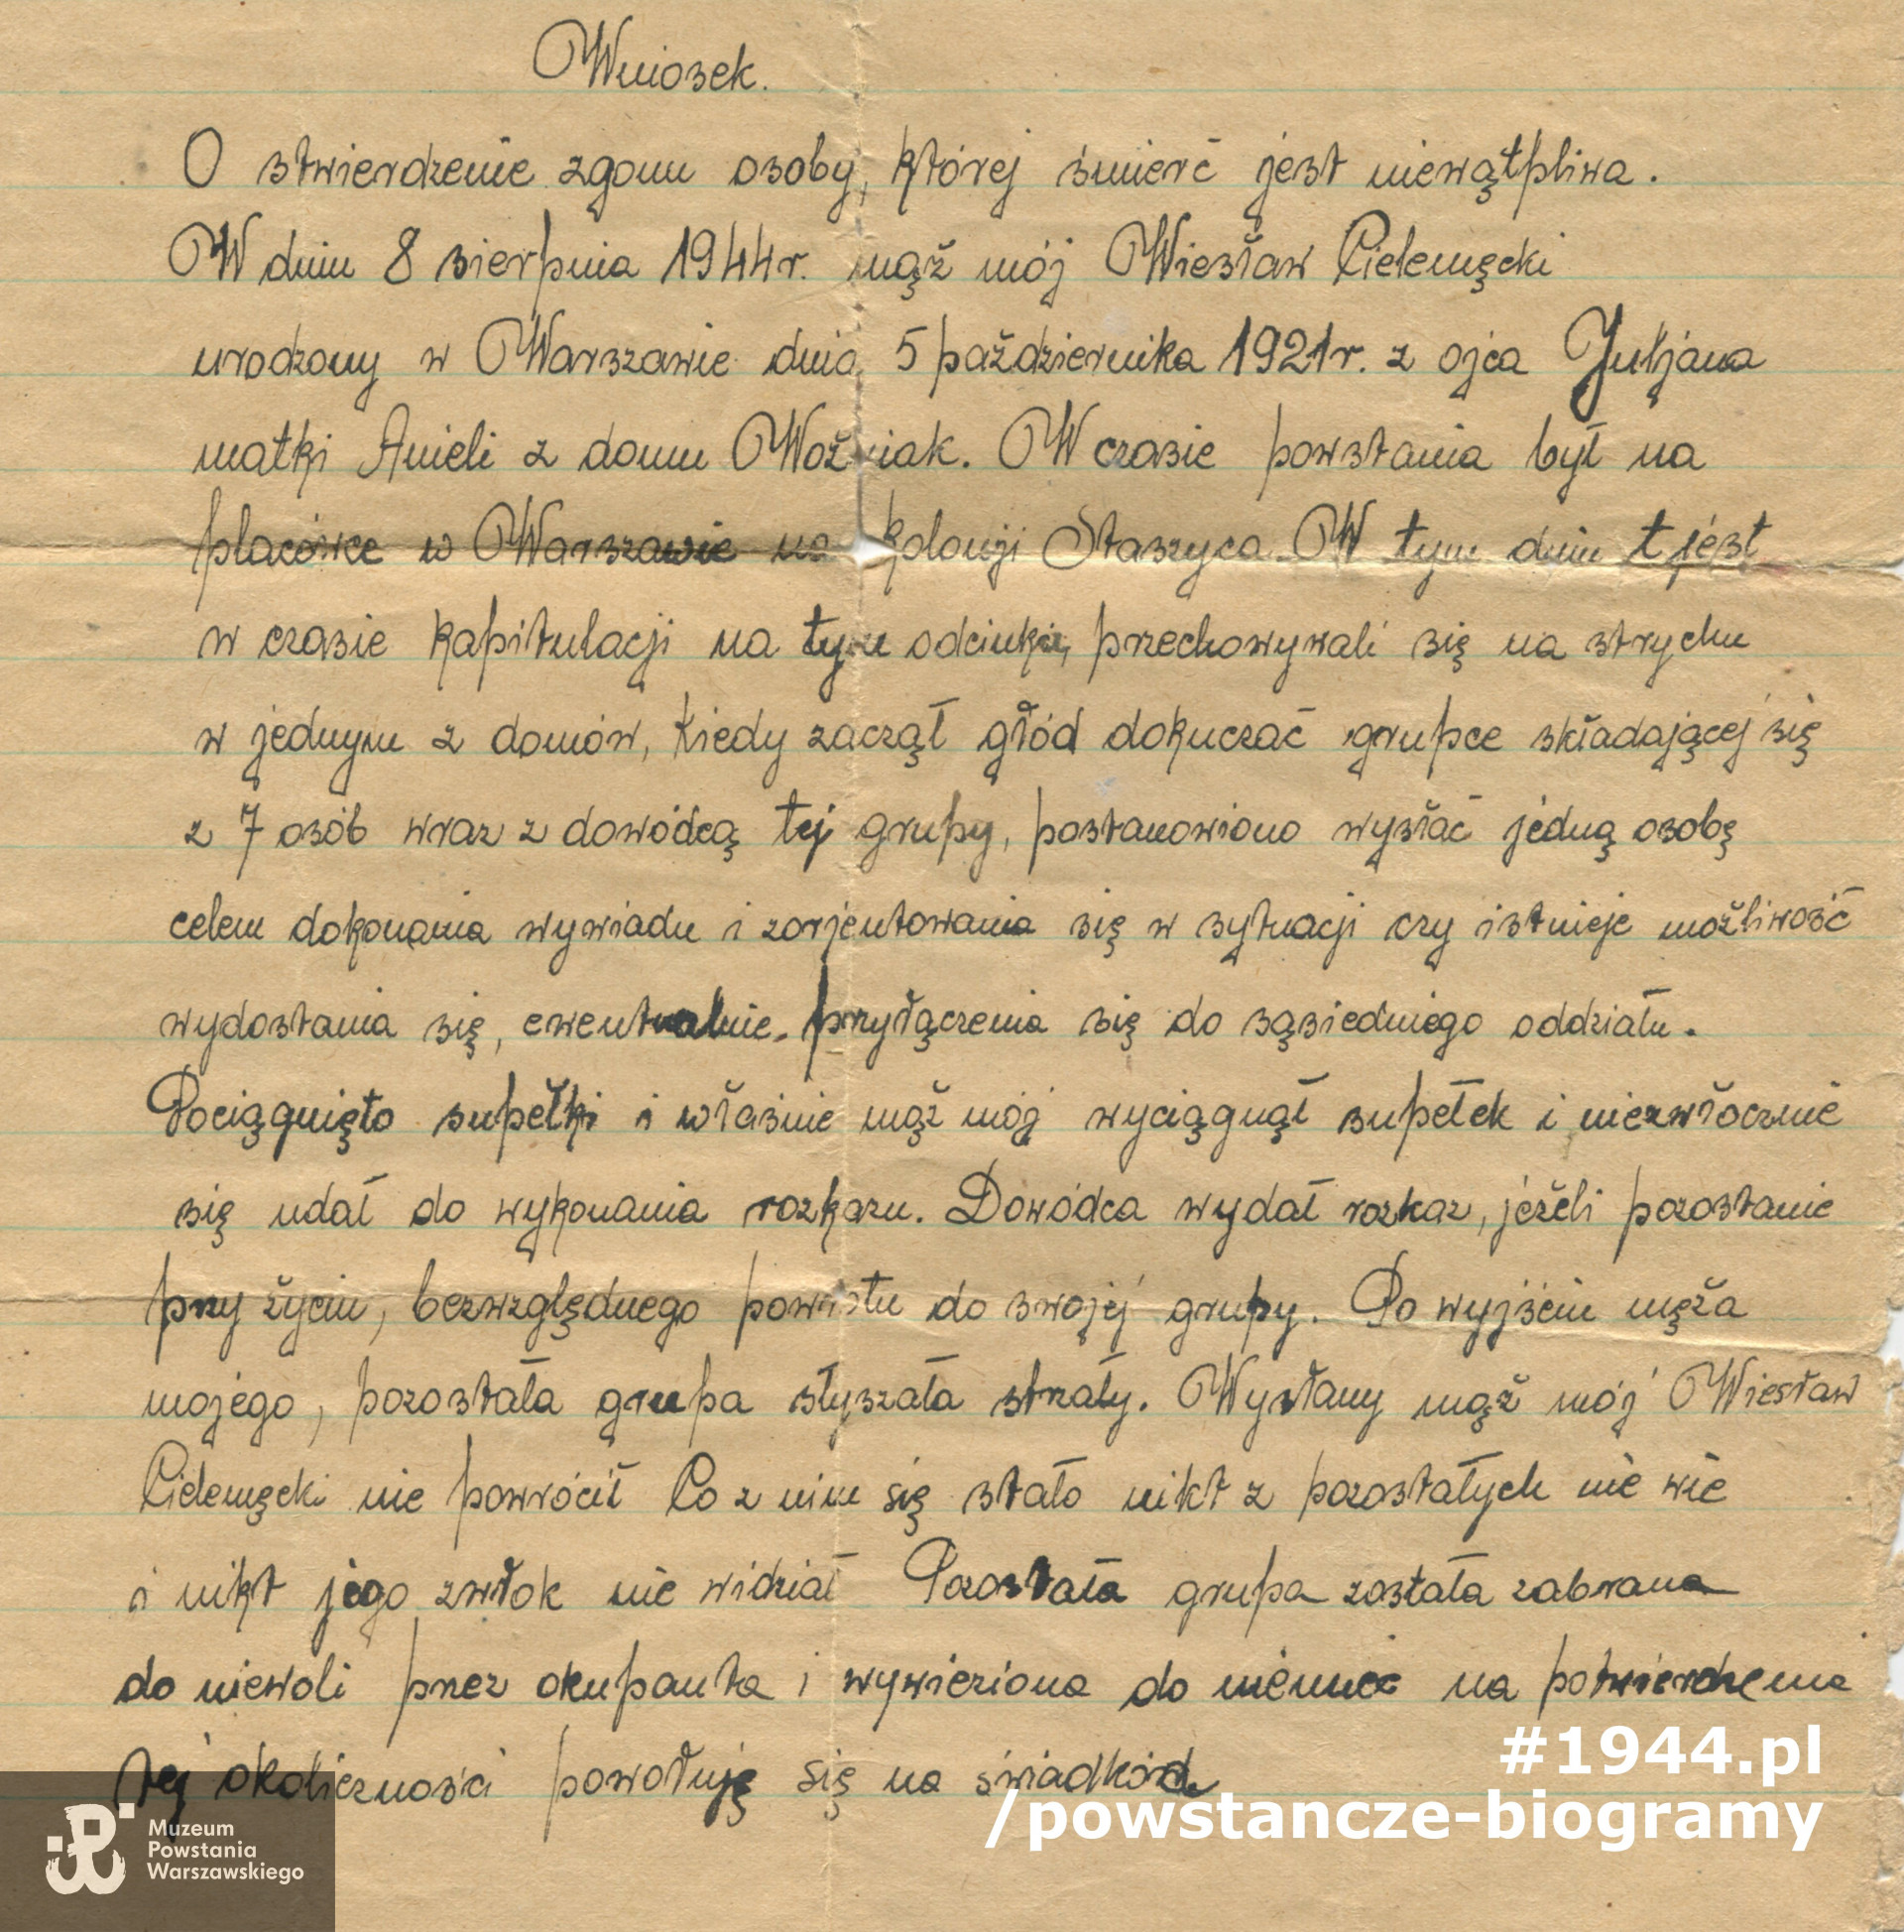 Wniosek.
O stwierdzenie zgonu osoby, której śmierć jest niewątpliwa.
W dniu 8 sierpnia 1944 r. mąż mój Wiesław Cielemęcki
urodzony w Warszawie dnia 5 października 1921 r. z ojca Juljana
matki Anieli z domu Woźniak. W czasie powstania był na
placówce w Warszawie na kolonji Staszyca. W tym dniu t jest
w czasie kapitulacji na tym odcinku, przechowywali się na strychu
w jednym z domów, kiedy zaczął głód dokuczać grupce składającej się
z 7 osób wraz z dowódcą tej grupy, postanowiono wysłać jedną osobę
celem dokonania wywiadu i zorjentowania się w sytuacji czy istnieje możliwość
wydostania się, ewentualnie przyłączenia się do sąsiedniego oddziału.
Pociągnięto supełki i właśnie mąż mój wyciągnął supełek i niezwłocznie
się udał do wykonania rozkazu. Dowódca wydał rozkaz, jeżeli pozostanie
przy życiu, bezwzględnego powrotu do swojej grupy. Po wyjściu męża
mojego, pozostała grupa słyszała strzały. Wysłany mąż mój Wiesław
Cielemęcki nie powrócił Co z nim się stało nikt z pozostałych nie wie
i nikt jego zwłok nie widział Pozostała grupa została zabrana
do niewoli przez okupanta i wywieziona do niemiec na potwierdzenia
tej okoliczności powołuję się na świadków
#1944.pl
/powstancze-biogramy
Muzeum
Powstania
Warszawskiego